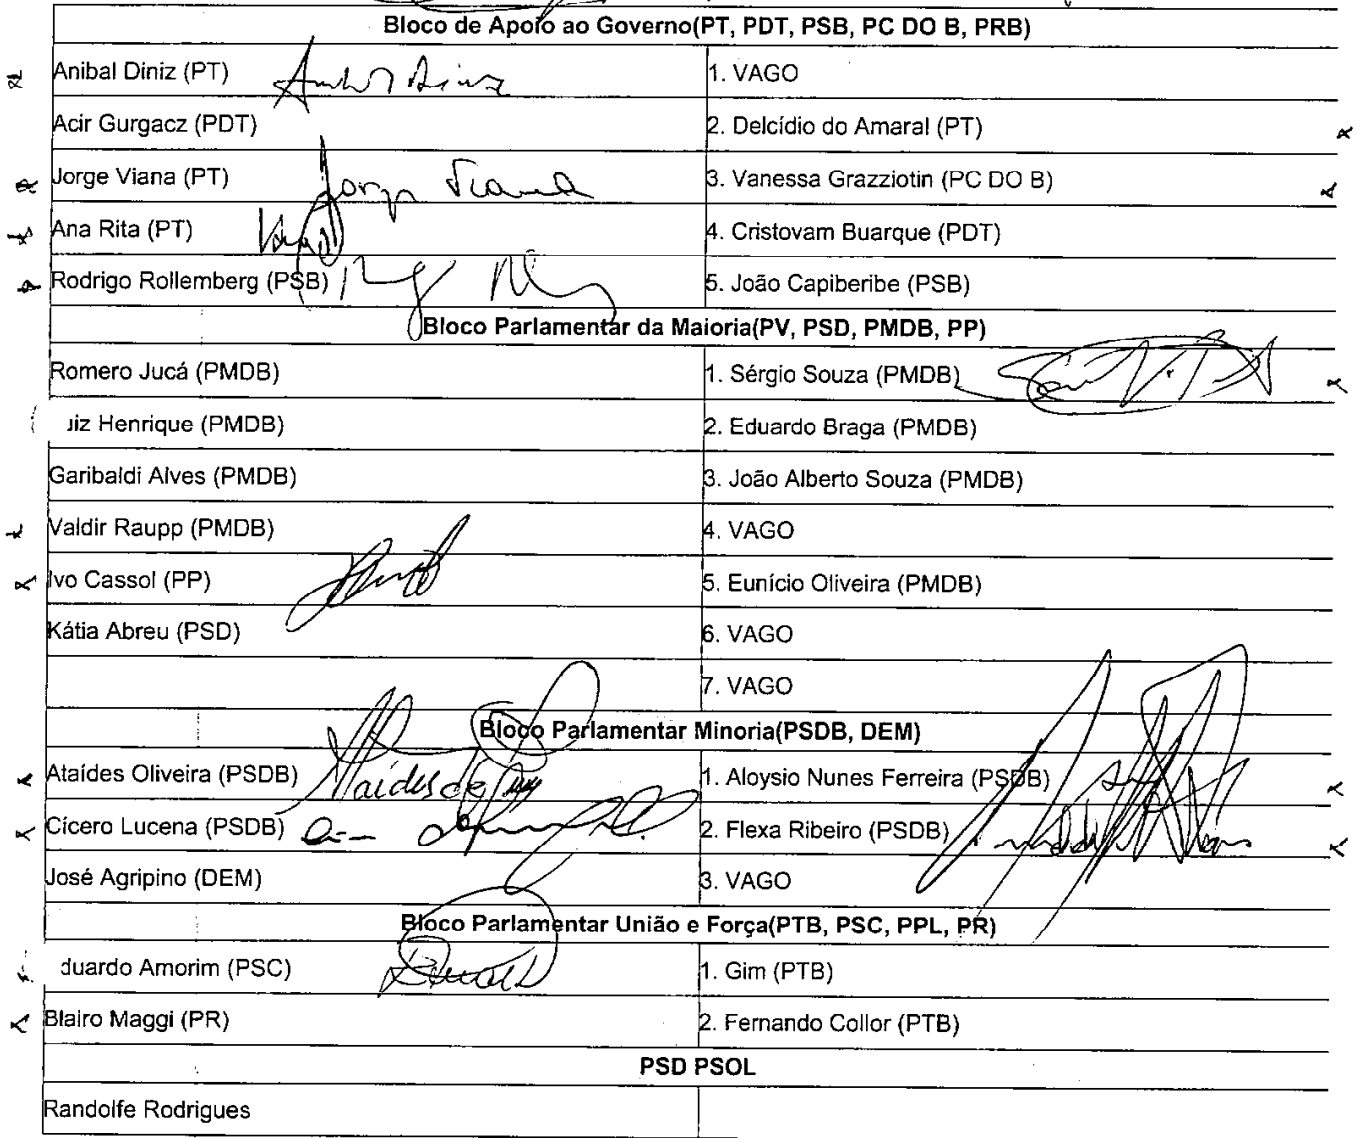 Bloco de Apoio ao Governo(PT, PDT, PSB, PC DO B, PRB)
Anibal Diniz (PT) 1. VAGO
Acir Gurgacz (PDT) 2. Delcídio do Amaral (PT)
Jorge Viana (PT) Jorge Viana 3. Vanessa Grazziotin (PC DO B)
Ana Rita (PT) 4. Cristovam Buarque (PDT)
Rodrigo Rollemberg (PSB) 5. João Capiberibe (PSB)
Bloco Parlamentar da Maioria(PV, PSD, PMDB, PP)
Romero Jucá (PMDB) 1. Sérgio Souza (PMDB)
uiz Henrique (PMDB) 2. Eduardo Braga (PMDB)
Garibaldi Alves (PMDB) 3. João Alberto Souza (PMDB)
Valdir Raupp (PMDB) 4. VAGO
Ivo Cassol (PP) 5. Eunício Oliveira (PMDB)
Kátia Abreu (PSD) 6. VAGO
7. VAGO
Bloco Parlamentar Minoria(PSDB, DEM)
Ataídes Oliveira (PSDB) Ataídes de 1. Aloysio Nunes Ferreira (PSDB)
Cícero Lucena (PSDB) 2. Flexa Ribeiro (PSDB)
José Agripino (DEM) 3. VAGO
Bloco Parlamentar União e Força(PTB, PSC, PPL, PR)
duardo Amorim (PSC) 1. Gim (PTB)
Blairo Maggi (PR) 2. Fernando Collor (PTB)
PSD PSOL
Randolfe Rodrigues